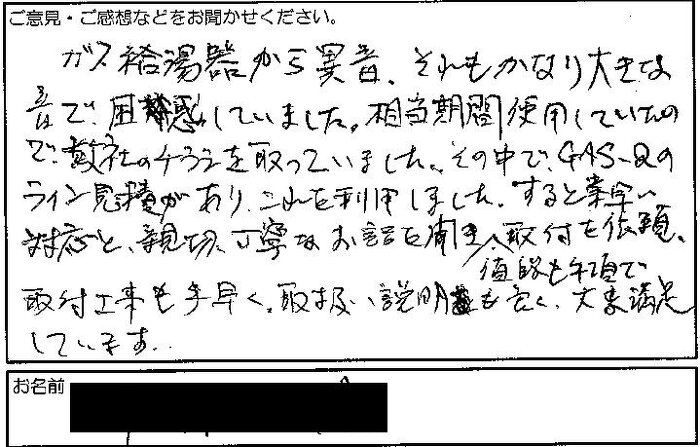 ご意見・ご感想などをお聞かせください。
ガス給湯器から異音、それもかなり大きな
音で、困惑していました。相当期間使用していたの
で、数社のチラシを取っていました。その中で、GAS-Qの
ライン見積があり、これを利用しました。すると素早い
対応と、親切、丁寧なお話を聞き、取付を依頼。
値段も手頃で
取付工事も手早く、取扱い説明も良く、大変満足
しています。
お名前